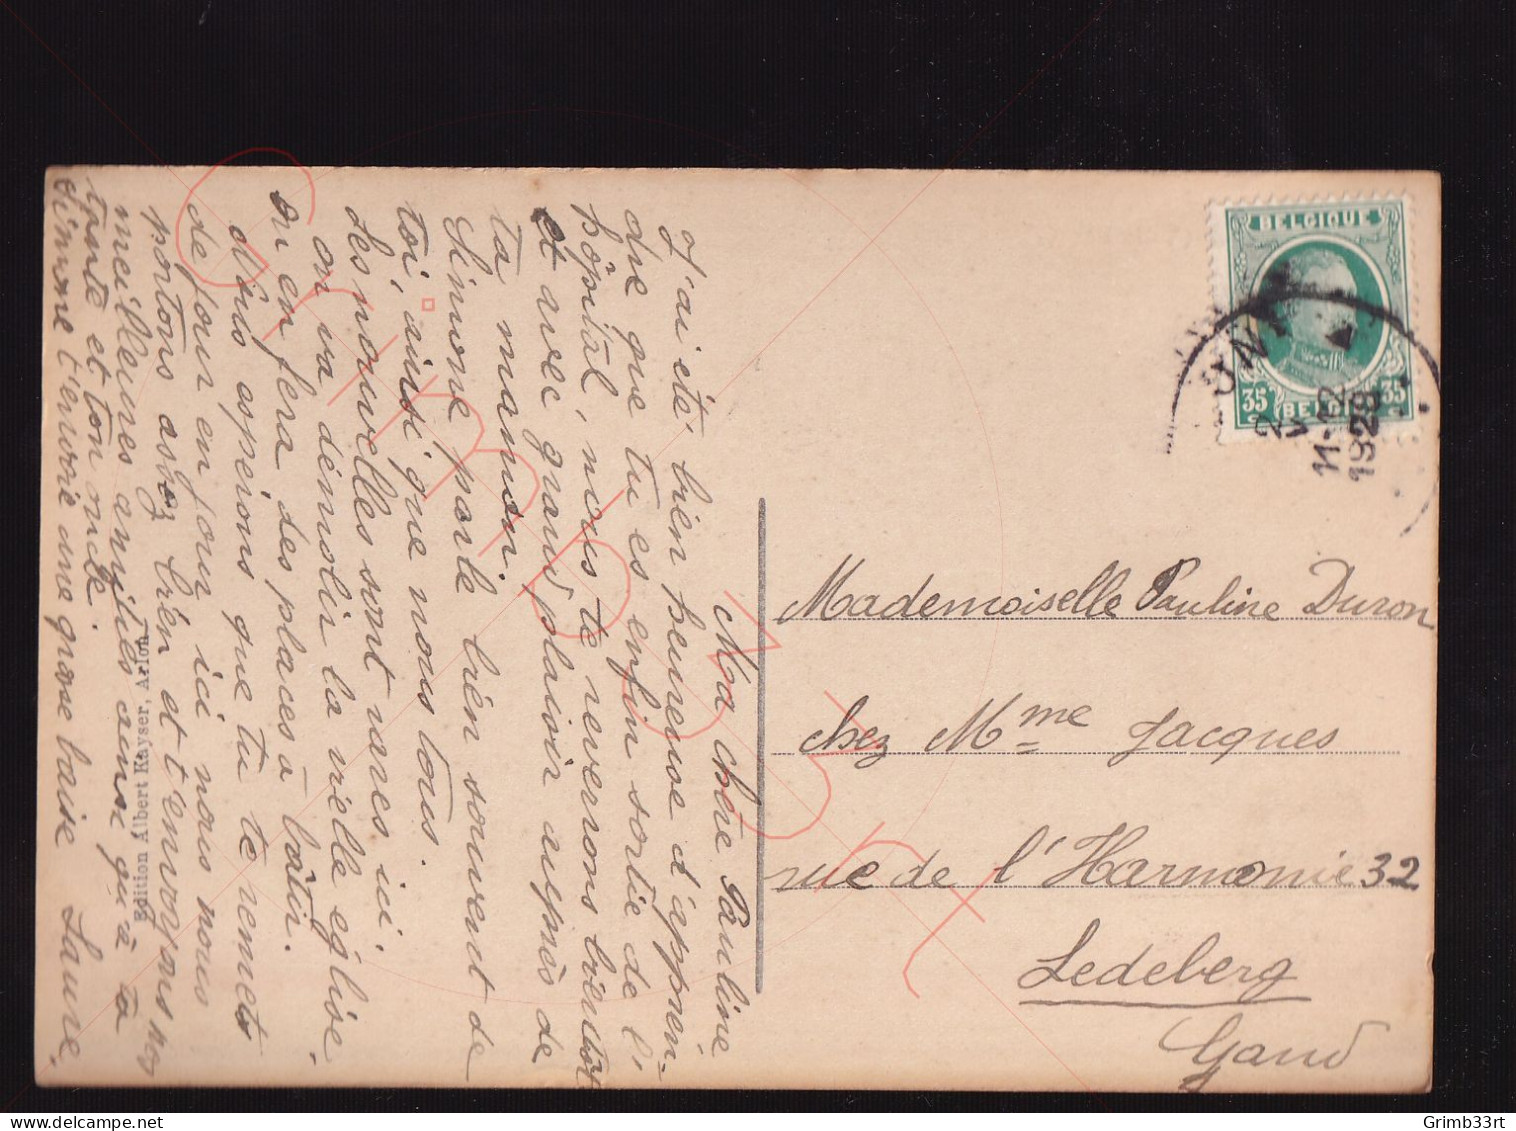 Ma chère Pauline
J'ai été, bien heureuse d'appren-
dre que tu es enfin sortie de l'
hôpital, nous te reverrons bientôt
et avec grand plaisir auprès de
ta maman.
Simone parle bien souvent de
toi, ainsi que nous tous.
Les nouvelles sont rares ici.
on va démolir la vielle eglise,
on en fera des places à bâtir.
Nous esperons que tu te remets
de jour en jour ici nous nous
portons assez bien et t'envoyons nos
meilleures amitiés ainsi qu'à ta
tante et ton oncle.
Simone t'envoie une grosse baise Laure.
Edition Albert Kayser, Arlon
BELGIQUE
35 BELGIË 35
2
V
11-12
1928
Mademoiselle Pauline Duron
chez Mme Jacques
rue de l'Harmonie 32
Ledeberg
Gand
Grimb33rt
Grimb33rt